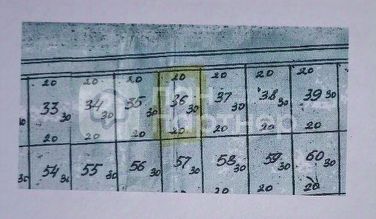 20 20 20 20 20 20 20
33 30 34 30 35 30 36 30 37 30 38 30 39 30
20 20 20 20 20 20
54 30 55 30 56 30 57 30 58 30 59 30 60 30
20 20 20
партнер